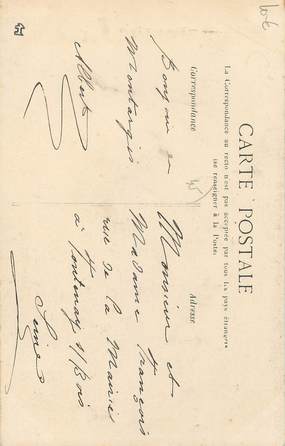 CARTE POSTALE
La Correspondance au recto n'est pas acceptée par tous les pays étrangers
(se renseigner à la Poste).
Correspondance
Adresse
Bonjour de
Montargis
Albert
Monsieur et
Madame François
rue de la Mairie
à Fontenay s/Bois
Seine